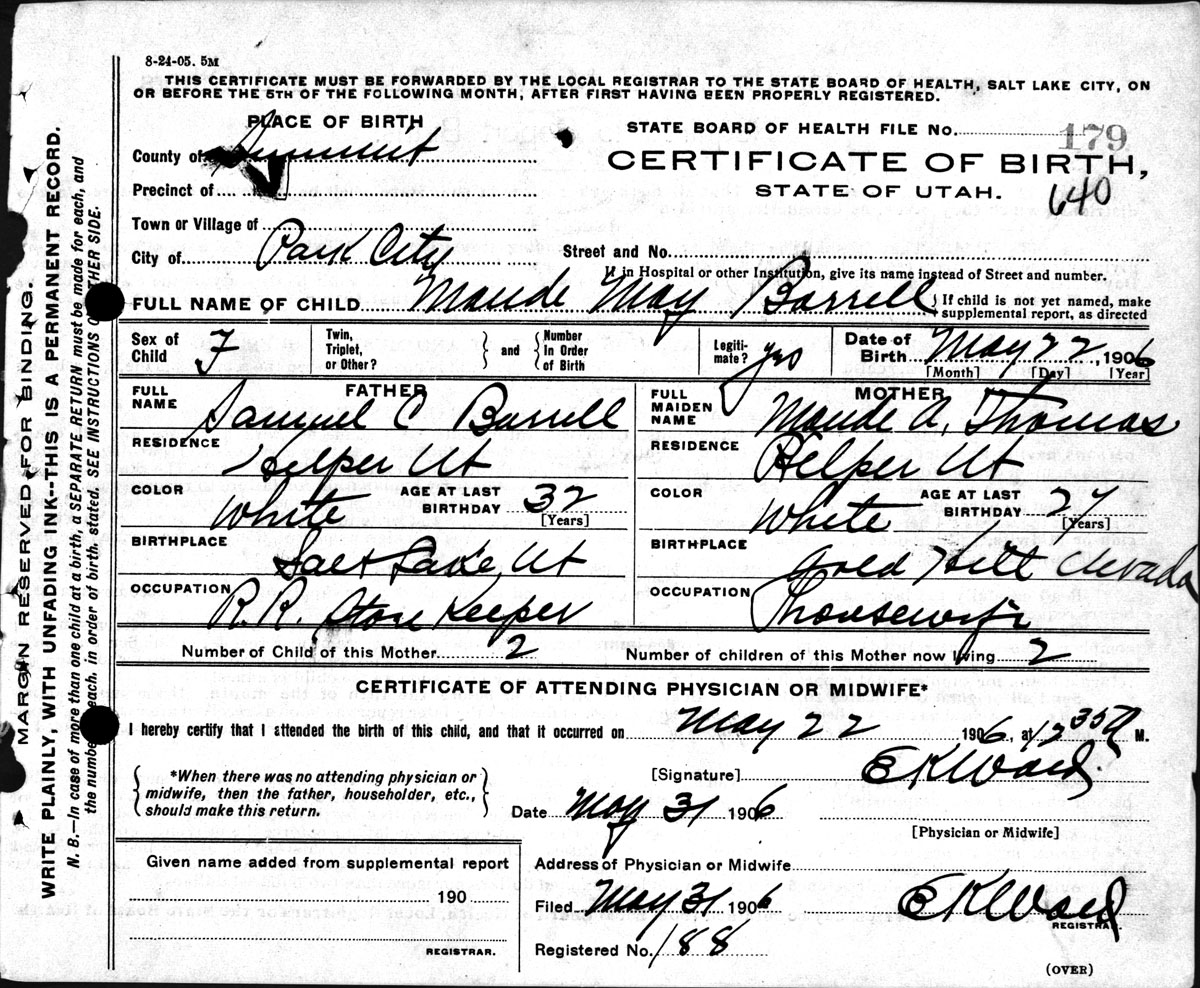 8-24-05. 5M
THIS CERTIFICATE MUST BE FORWARDED BY THE LOCAL REGISTRAR TO THE STATE BOARD OF HEALTH, SALT LAKE CITY, ON
OR BEFORE THE 5TH OF THE FOLLOWING MONTH, AFTER FIRST HAVING BEEN PROPERLY REGISTERED.
PLACE OF BIRTH
STATE BOARD OF HEALTH FILE No. 179
County of Summit
CERTIFICATE OF BIRTH,
Precinct of
STATE OF UTAH.
640
Town or Village of
City of Park City
Street and No.
If in Hospital or other Institution, give its name instead of Street and number.
FULL NAME OF CHILD Maude May Barrell
If child is not yet named, make
supplemental report, as directed
Sex of
Child F
Twin,
Triplet,
or Other?
and
Number
In Order
of Birth
Legiti-
mate? yes
Date of
Birth May 22, 1906
[Month] [Day] [Year]
FATHER
FULL
NAME Samuel C Barrell
RESIDENCE
Helper Ut
COLOR White
AGE AT LAST
BIRTHDAY 32
[Years]
BIRTHPLACE
Salt Lake, Ut
OCCUPATION
R.R. Store Keeper
MOTHER
FULL
MAIDEN
NAME Maude A. Thomas
RESIDENCE
Helper Ut
COLOR White
AGE AT LAST
BIRTHDAY 27
[Years]
BIRTHPLACE
Gold Hill Nevada
OCCUPATION
Housewife
Number of Child of this Mother 2
Number of children of this Mother now living 2
CERTIFICATE OF ATTENDING PHYSICIAN OR MIDWIFE*
I hereby certify that I attended the birth of this child, and that it occurred on May 22 1906, at 12 35 M.
*When there was no attending physician or
midwife, then the father, householder, etc.,
should make this return.
[Signature] E K Ward
Date May 31 1906
[Physician or Midwife]
Given name added from supplemental report
190
REGISTRAR.
Address of Physician or Midwife
Filed May 31 1906 E K Ward
REGISTRAR.
Registered No. 188
(OVER)
MARGIN RESERVED FOR BINDING.
WRITE PLAINLY, WITH UNFADING INK--THIS IS A PERMANENT RECORD.
N. B.—In case of more than one child at a birth, a SEPARATE RETURN must be made for each, and
the number each, in order of birth, stated. SEE INSTRUCTIONS OTHER SIDE.